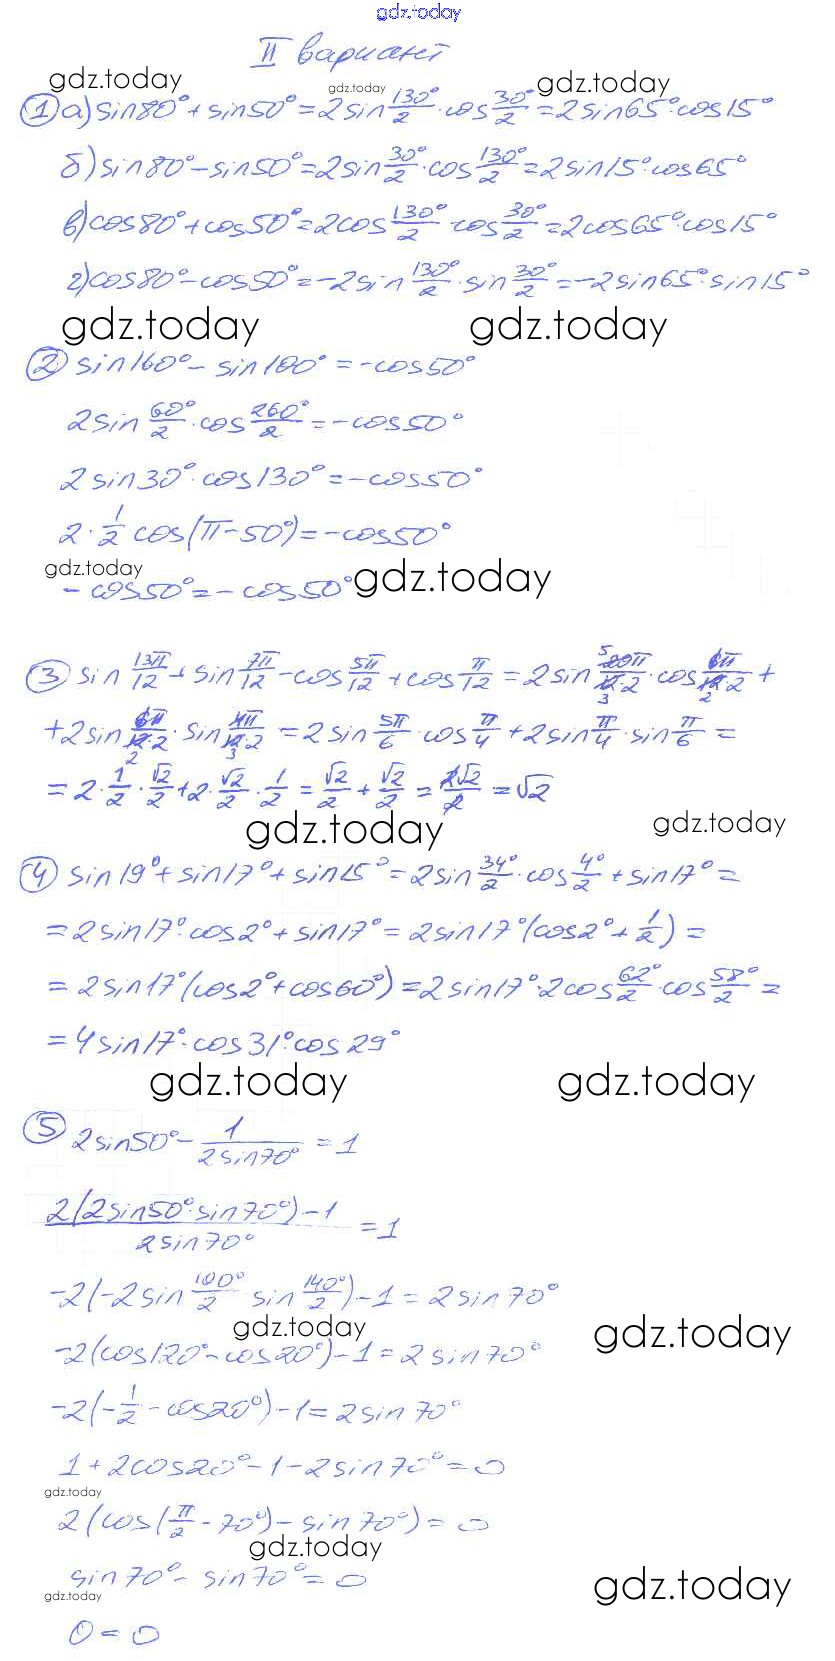 gdz.today
II вариант
gdz.today gdz.today gdz.today
① а) sin80° + sin50° = 2sin 130°/2 · cos 30°/2 = 2sin65°·cos15°
б) sin80° − sin50° = 2sin 30°/2 · cos 130°/2 = 2sin15°·cos65°
в) cos80° + cos50° = 2cos 130°/2 cos 30°/2 = 2cos65°·cos15°
г) cos80° − cos50° = −2sin 130°/2 · sin 30°/2 = −2sin65°·sin15°
gdz.today gdz.today
② sin160° − sin100° = −cos50°
2sin 60°/2 · cos 260°/2 = −cos50°
2sin30°·cos130° = −cos50°
2 · 1/2 cos(π − 50°) = −cos50°
gdz.today
−cos50° = −cos50° gdz.today
③ sin 13π/12 + sin 7π/12 − cos 5π/12 + cos π/12 = 2sin 20π/12·2 · cos 6π/12·2 +
+ 2sin 6π/12·2 · sin 4π/12·2 = 2sin 5π/6 · cos π/4 + 2sin π/4 · sin π/6 =
= 2 · 1/2 · √2/2 + 2 · √2/2 · 1/2 = √2/2 + √2/2 = 2√2/2 = √2
gdz.today gdz.today
④ sin19° + sin17° + sin15° = 2sin 34°/2 · cos 4°/2 + sin17° =
= 2sin17°·cos2° + sin17° = 2sin17°(cos2° + 1/2) =
= 2sin17°(cos2° + cos60°) = 2sin17°·2cos 62°/2 · cos 58°/2 =
= 4sin17°·cos31°·cos29°
gdz.today gdz.today
⑤ 2sin50° − 1/2sin70° = 1
2(2sin50°·sin70°) − 1 / 2sin70° = 1
−2(−2sin 100°/2 sin 140°/2) − 1 = 2sin70°
gdz.today gdz.today
−2(cos120° − cos20°) − 1 = 2sin70°
−2(−1/2 − cos20°) − 1 = 2sin70°
1 + 2cos20° − 1 − 2sin70° = 0
gdz.today
2(cos(π/2 − 70°) − sin70°) = 0
gdz.today
sin70° − sin70° = 0 gdz.today
gdz.today
0 = 0